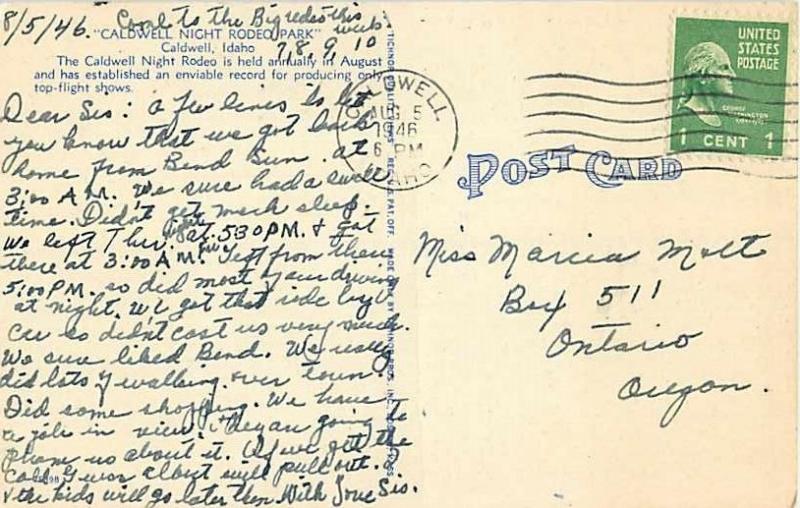 8/5/46. Come to the Big rodeo this week.
7, 8, 9, 10
"CALDWELL NIGHT RODEO PARK"
Caldwell, Idaho
The Caldwell Night Rodeo is held annually in August
and has established an enviable record for producing only
top-flight shows.
Dear Sis: a few lines to let
you know that we got back
home from Bend Sun. at
3:00 A.M. We sure had a swell
time. Didn't get much sleep.
We left Thur. night at 5:30 PM. & got
there at 3:00 A.M. Left from there
5:00 PM. so did most of our driving
at night. We got that ride by
car so didn't cost us very much.
We sure liked Bend. We really
did lots of walking over town.
Did some shopping. We have
a job in view. They are going to
phone us about it. If we get the
call Geo & Albert will pull out.
& the kids will go later then. With Love Sis.
CALDWELL
AUG 5
1946
6 PM
IDAHO
UNITED
STATES
POSTAGE
GEORGE
WASHINGTON
1 CENT 1
POST CARD
Miss Marcia Molt
Box 511
Ontario
Oregon.